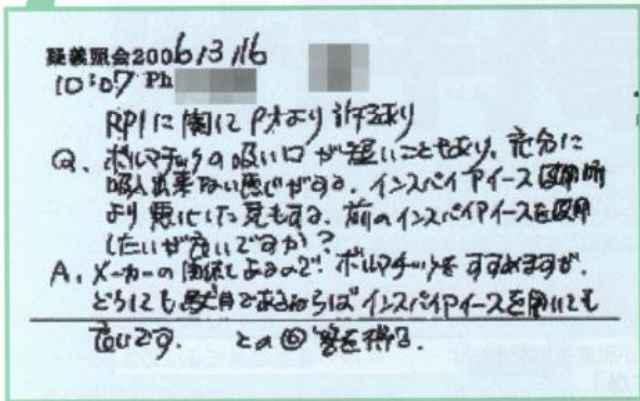 疑義照会2006/3/16
10:07 Ph
RP1に関して Ptより 訴えあり
Q. ボルマチックの吸い口が短いこともあり、充分に
吸入出来ない感じがする。インスパイアイース使用時
より悪化した気もする。前のインスパイアイースを使用
したいが良いですか?
A. メーカーの関係もあるので、ボルマチックをすすめますが、
どうしても駄目であるならば インスパイアイースを用いても
良いです. との 答を得る.